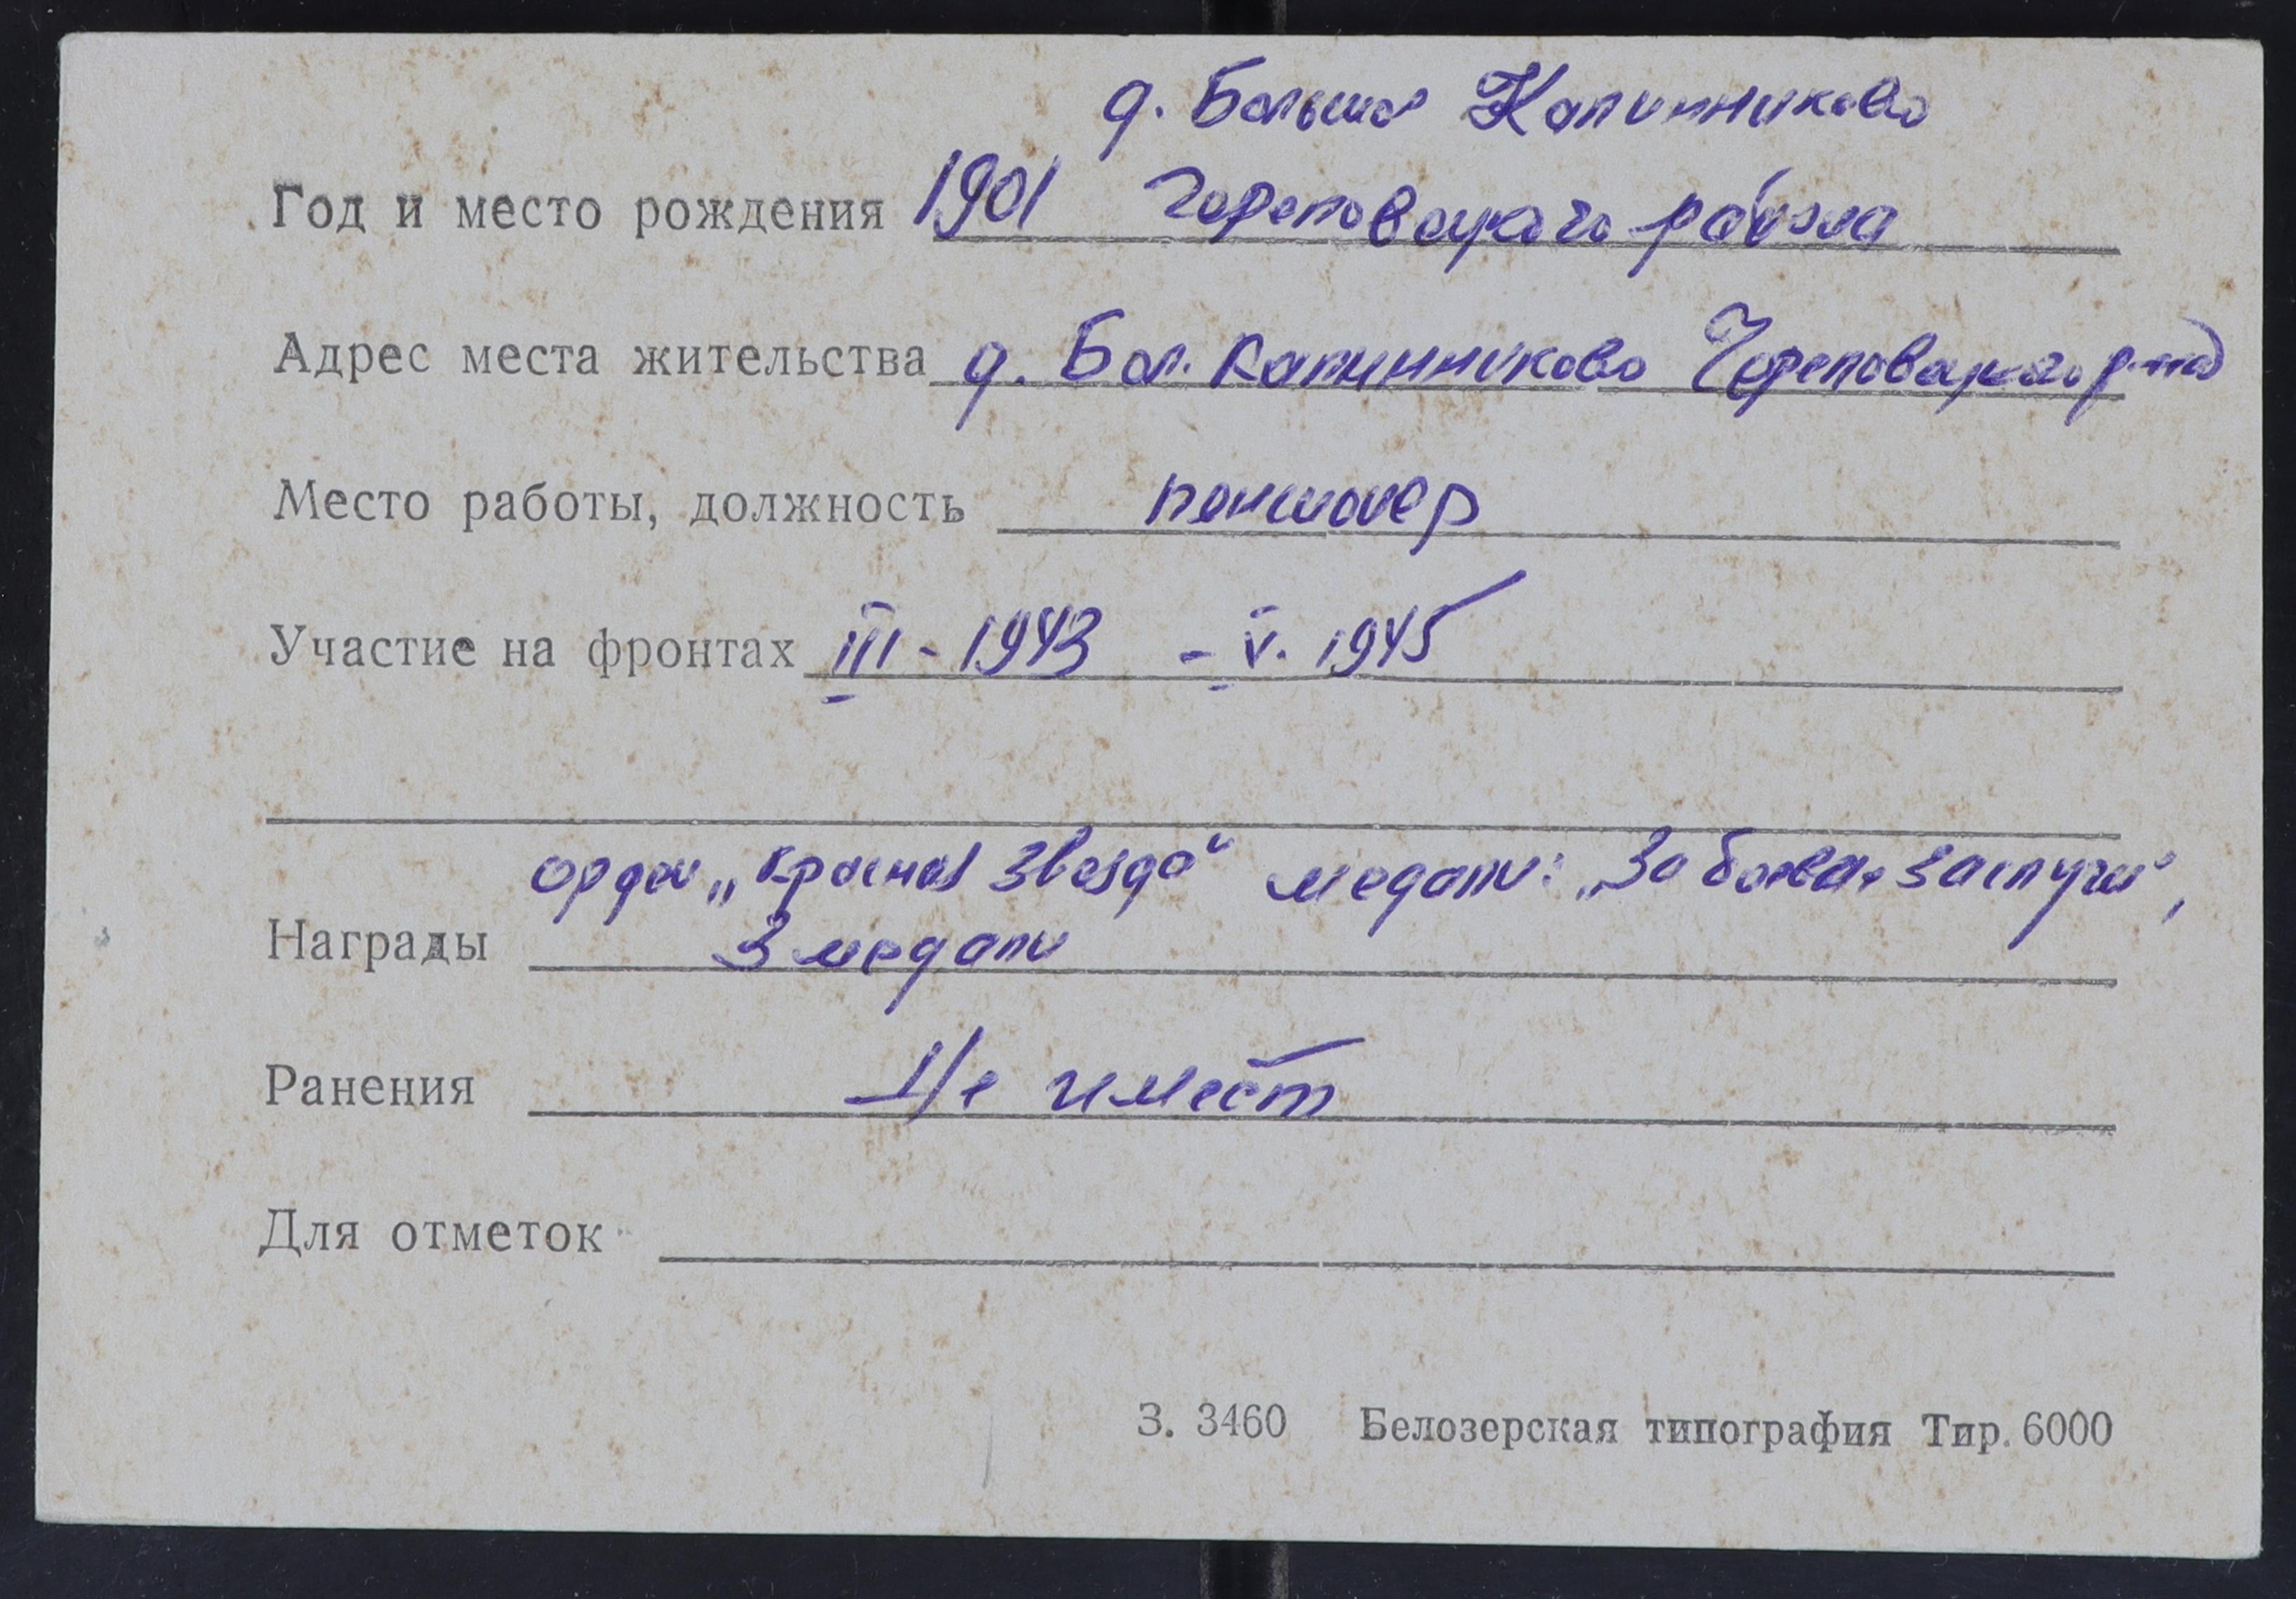 д. Большое Калинниково
Год и место рождения 1901 Череповецкого района
Адрес места жительства д. Бол. Калинниково Череповецкого р-на
Место работы, должность пенсионер
Участие на фронтах III - 1943 - V. 1945
орден „Красная Звезда“ медали: „За боевые заслуги“,
Награды 3 медали
Ранения Не имеет
Для отметок
З. 3460 Белозерская типография Тир. 6000